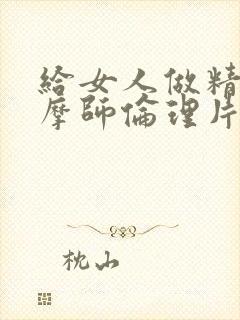 給女人做精
摩師倫理片
枕山